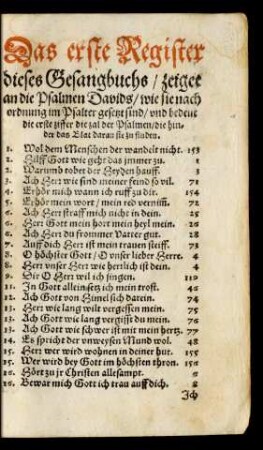 Das erste Register
dieses Gesangbuchs / zeiget
an die Psalmen Davids / wie sie nach
ordnung im Psalter gesetzt sind / vnd bedeut
die erste ziffer die zal der Psalmen / die hin-
der das Blat daran sie zu finden.
1. Wol dem Menschen der wandelt nicht. 153
2. Hilff Gott wie geht das immer zu. 1
2. Warumb tobet der Heyden hauff. 3
3. Ach Herr wie sind meiner feind so vil. 71
4. Erhör mich wann ich ruff zu dir. 154
5. Erhör mein wort / mein red vernim̄. 72
6. Ach Herr straff mich nicht in dein. 25
6. Herr Gott mein hort mein heyl mein. 26
6. Ach Herr du frommer Vatter gut. 28
7. Auff dich Herr ist mein trauen steiff. 73
8. O höchster Gott / O vnser lieber Herre. 4
8. Herr vnser Herr wie herrlich ist dein. 4
9. Dir O Herr wil ich singen. 110
11. In Gott allein setz ich mein trost. 45
12. Ach Gott von Himel sich darein. 74
13. Herr wie lang wilt vergessen mein. 75
13. Ach Gott wie lang vergisst du mein. 76
13. Ach Gott wie schwer ist mit mein hertz. 77
14. Es spricht der vnweysen Mund wol. 48
15. Herr wer wird wohnen in deiner hut. 155
15. Wer wird bey Gott im höchsten thron. 156
15. Hört zu jr Christen allesampt.
16. Bewar mich Gott ich trau auff dich. 8
Ich